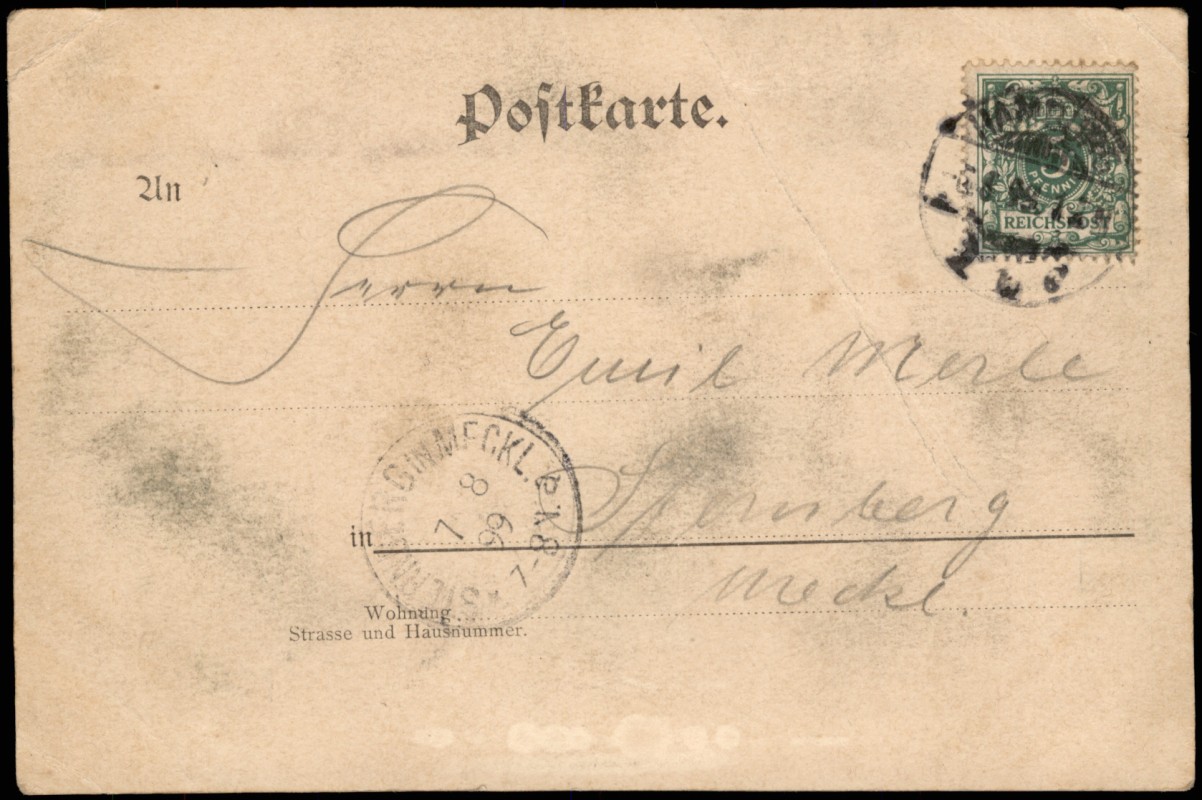 Postkarte.
5
PFENNIG
REICHSPOST
An
Herrn
Emil Merle
STERNBERG IN MECKL.
7 8
99
7-8 N.
in Sternberg
Meckl.
Wohnung
Strasse und Hausnummer.